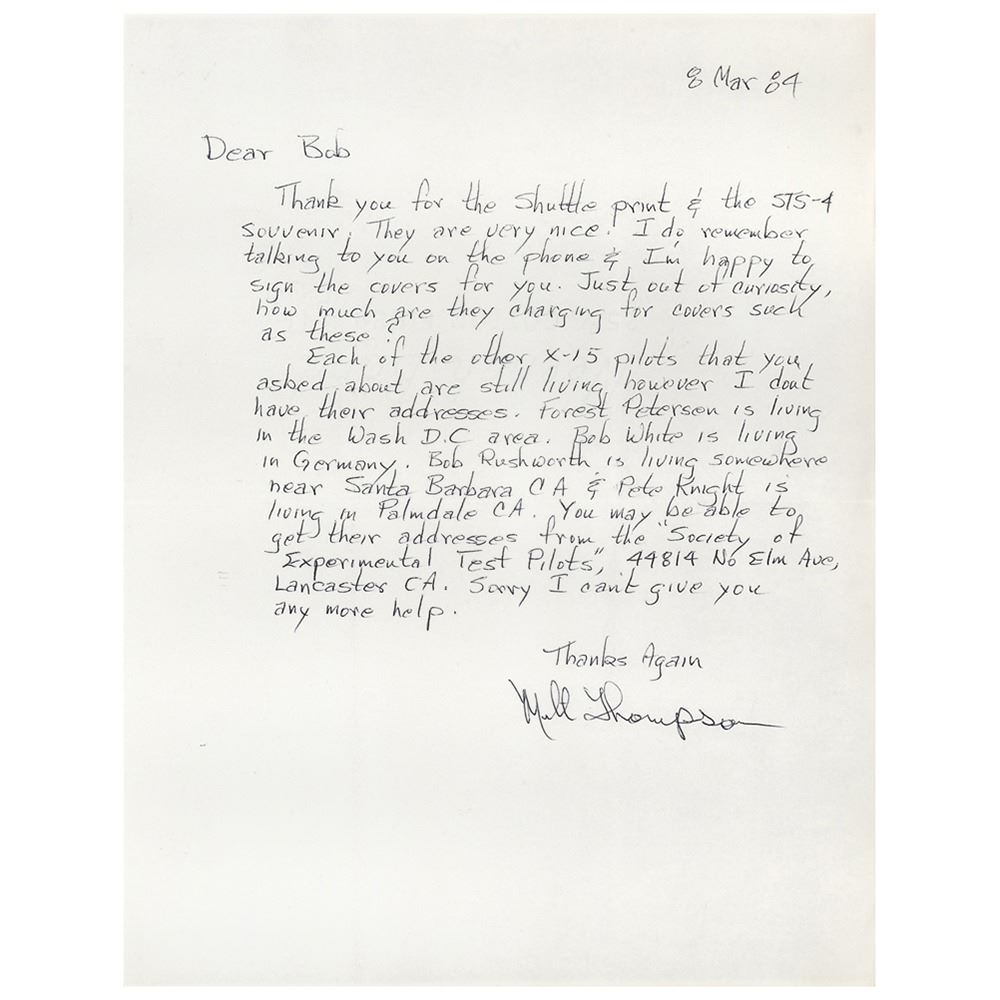 8 Mar 84
Dear Bob
Thank you for the Shuttle print & the STS-4
souvenir. They are very nice. I do remember
talking to you on the phone & I'm happy to
sign the covers for you. Just out of curiosity,
how much are they charging for covers such
as these?
Each of the other X-15 pilots that you
asked about are still living, however I dont
have their addresses. Forest Petersen is living
in the Wash D.C area. Bob White is living
in Germany. Bob Rushworth is living somewhere
near Santa Barbara CA & Pete Knight is
living in Palmdale CA. You may be able to
get their addresses from the "Society of
Experimental Test Pilots", 44814 No Elm Ave,
Lancaster CA. Sorry I can't give you
any more help.
Thanks Again
Milt Thompson